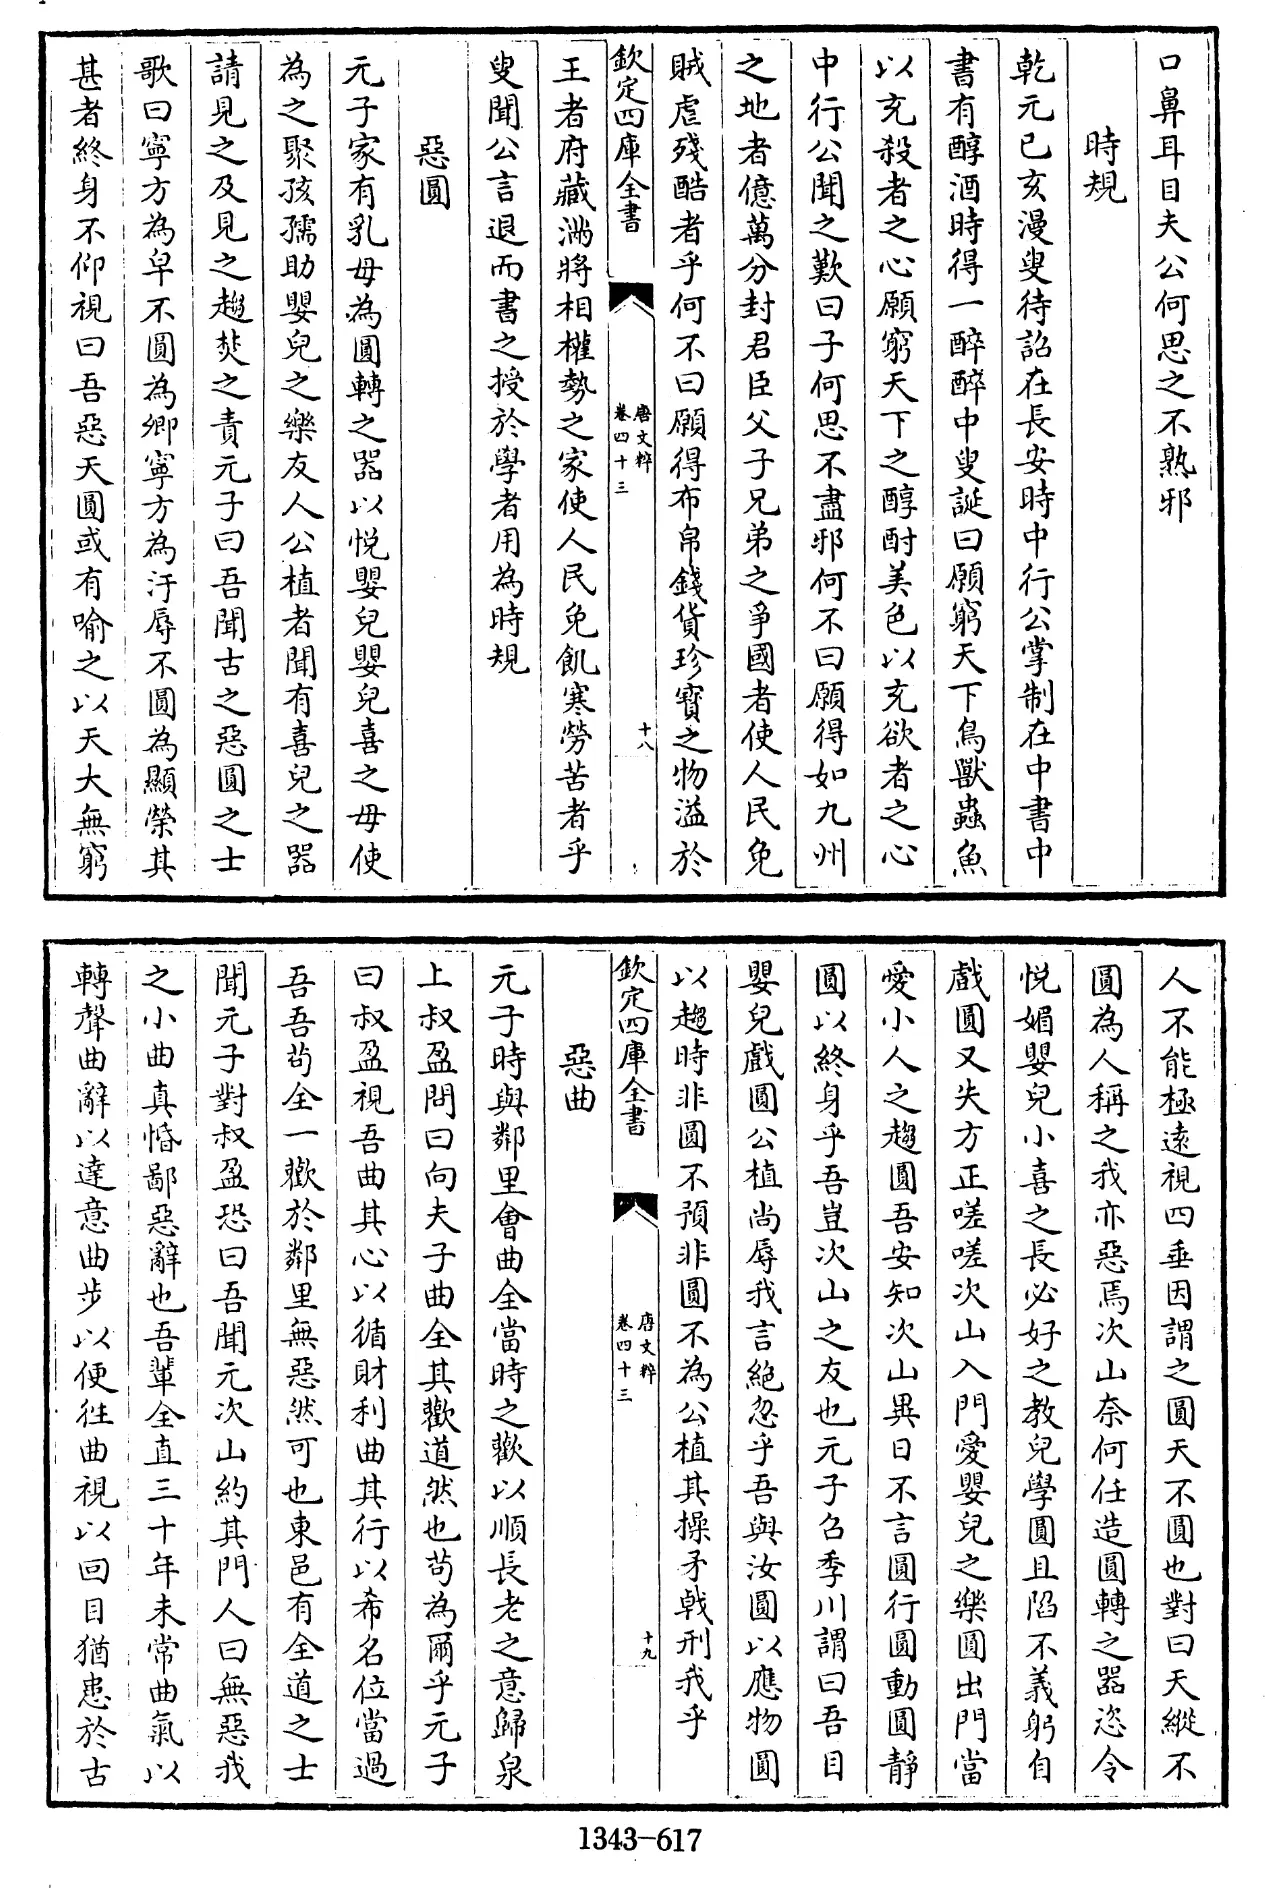 口鼻耳目夫公何思之不熟邪
時規
乾元已亥漫叟待詔在長安時中行公掌制在中書中
書有醇酒時得一醉醉中叟誕曰願窮天下鳥獸蟲魚
以充殺者之心願窮天下之醇酎美色以充欲者之心
中行公聞之歎曰子何思不盡邪何不曰願得如九州
之地者億萬分封君臣父子兄弟之爭國者使人民免
賊虐殘酷者乎何不曰願得布帛錢貨珍寶之物溢於
欽定四庫全書
唐文粹
卷四十三
十八
王者府藏滿將相權勢之家使人民免飢寒勞苦者乎
叟聞公言退而書之授於學者用為時規
惡圓
元子家有乳母為圓轉之器以悅嬰兒嬰兒喜之母使
為之聚孩孺助嬰兒之樂友人公植者聞有喜兒之器
請見之及見之趨焚之責元子曰吾聞古之惡圓之士
歌曰寧方為皁不圓為卿寧方為汙辱不圓為顯榮其
甚者終身不仰視曰吾惡天圓或有喻之以天大無窮
人不能極遠視四垂因謂之圓天不圓也對曰天縱不
圓為人稱之我亦惡焉次山奈何任造圓轉之器恣令
悅媚嬰兒小喜之長必好之教兒學圓且陷不義躬自
戲圓又失方正嗟嗟次山入門愛嬰兒之樂圓出門當
愛小人之趨圓吾安知次山異日不言圓行圓動圓靜
圓以終身乎吾豈次山之友也元子召季川謂曰吾自
嬰兒戲圓公植尚辱我言絕忽乎吾與汝圓以應物圓
以趨時非圓不預非圓不為公植其操矛戟刑我乎
欽定四庫全書
唐文粹
卷四十三
十九
惡曲
元子時與鄰里會曲全當時之歡以順長老之意歸泉
上叔盈問曰向夫子曲全其歡道然也茍為爾乎元子
曰叔盈視吾曲其心以循財利曲其行以希名位當過
吾吾茍全一歡於鄰里無惡然可也東邑有全道之士
聞元子對叔盈恐曰吾聞元次山約其門人曰無惡我
之小曲真惛鄙惡辭也吾輩全直三十年未常曲氣以
轉聲曲辭以達意曲步以便往曲視以回目猶患於古
1343-617